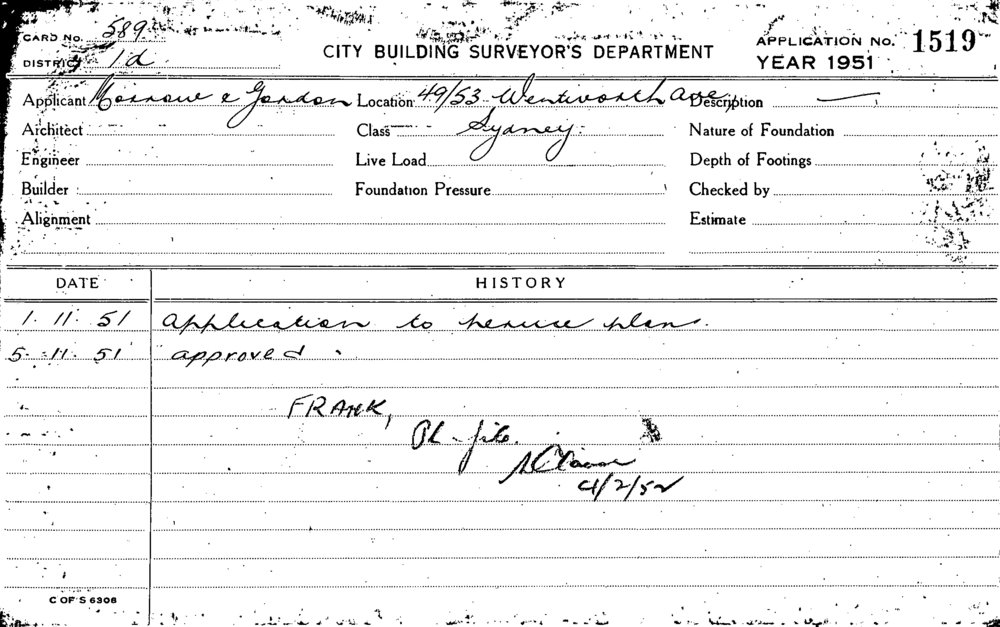 CARD No. 589
DISTRICT 1d
CITY BUILDING SURVEYOR'S DEPARTMENT
APPLICATION No. 1519
YEAR 1951
Applicant Morrow & Gordon Location 49/53 Wentworth Ave Description —
Architect Class Sydney. Nature of Foundation
Engineer Live Load Depth of Footings
Builder Foundation Pressure Checked by
Alignment Estimate
DATE HISTORY
1. 11. 51 Application to peruse plans.
5. 11. 51 approved.
FRANK,
Pl. file.
4/2/52
C OF S 6308